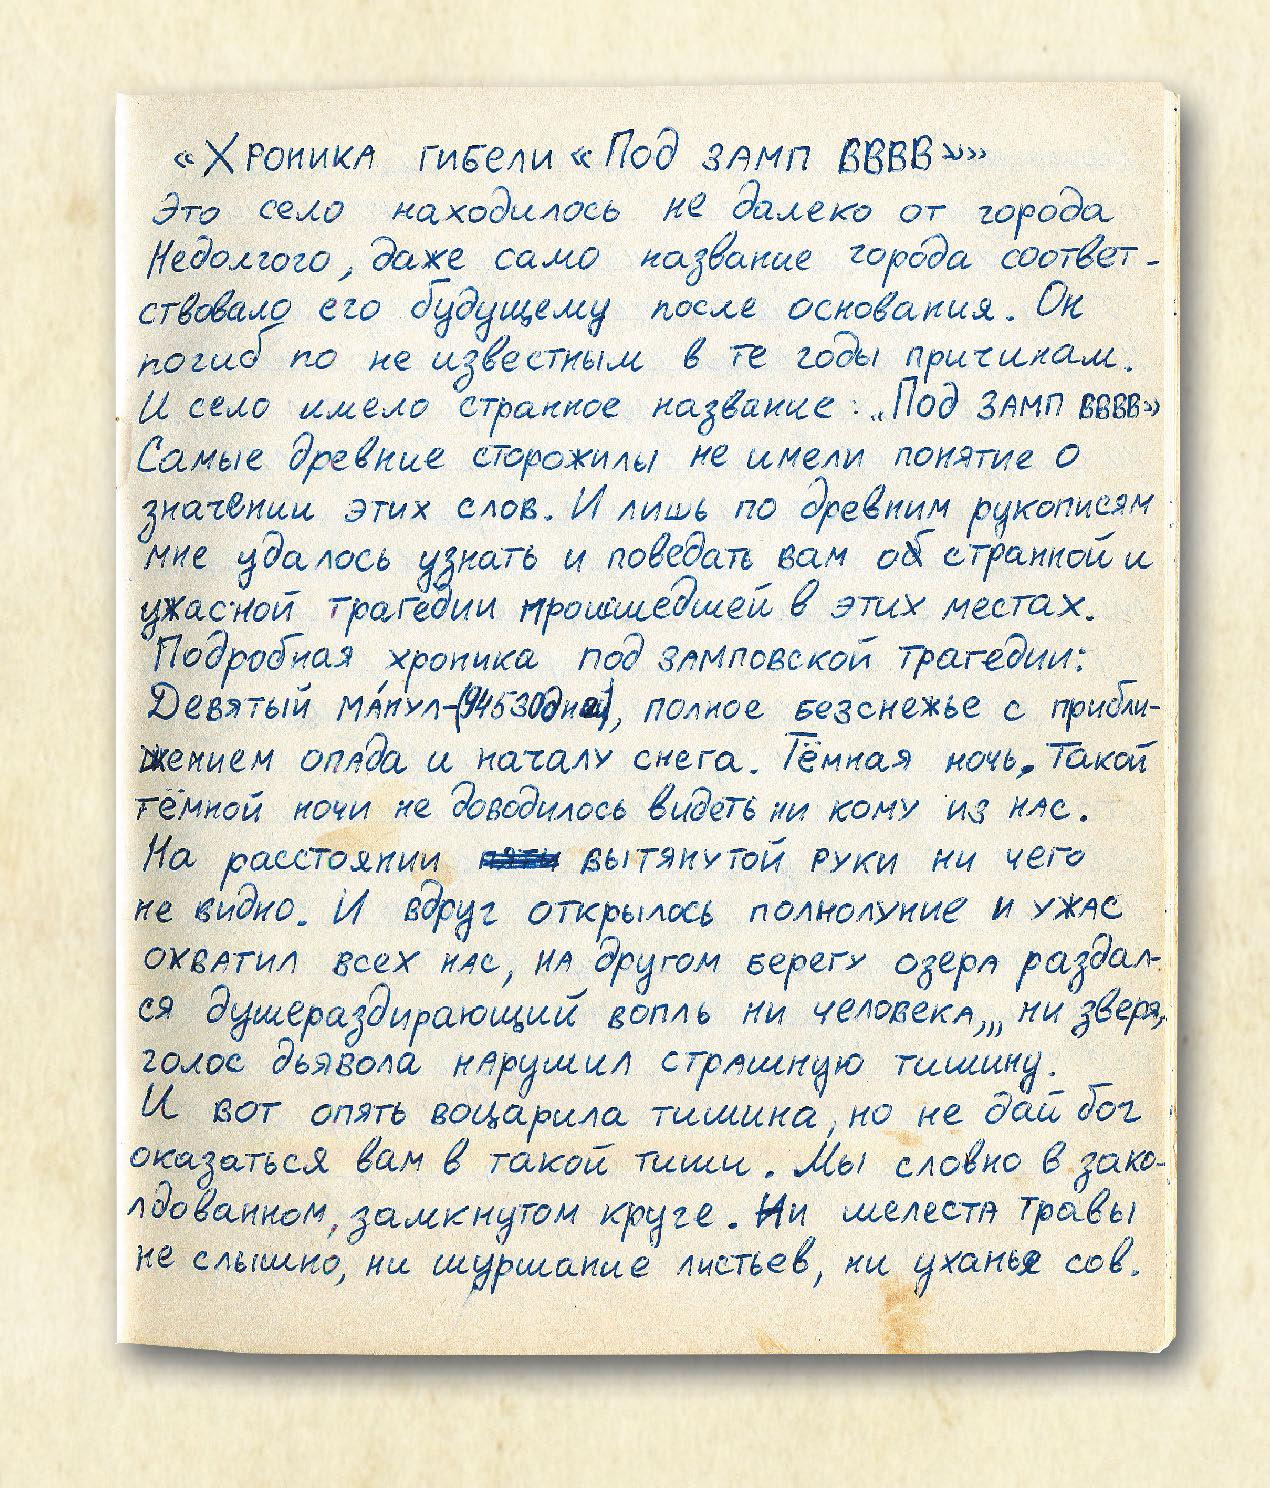 «Хроника гибели «Под замп ВВВВ»»
Это село находилось не далеко от города
Недолгого, даже само название города соответ-
ствовало его будущему после основания. Он
погиб по не известным в те годы причинам.
И село имело странное название: „Под замп ВВВВ»
Самые древние сторожилы не имели понятие о
значении этих слов. И лишь по древним рукописям
мне удалось узнать и поведать вам об странной и
ужасной трагедии проишедшей в этих местах.
Подробная хроника под замповской трагедии:
Девятый ма́нул-(94530дней), полное безснежье с прибли-
жением опада и началу снега. Тёмная ночь. Такой
тёмной ночи не доводилось видеть ни кому из нас.
На расстоянии вытянутой руки ни чего
не видно. И вдруг открылось полнолуние и ужас
охватил всех нас, на другом берегу озера раздал-
ся душераздирающий вопль ни человека,,, ни зверя,
голос дьявола нарушил страшную тишину.
И вот опять воцарила тишина, но не дай бог
оказаться вам в такой тиши. Мы словно в зако-
лдованном, замкнутом круге. Ни шелеста травы
не слышно, ни шуршание листьев, ни уханье сов.